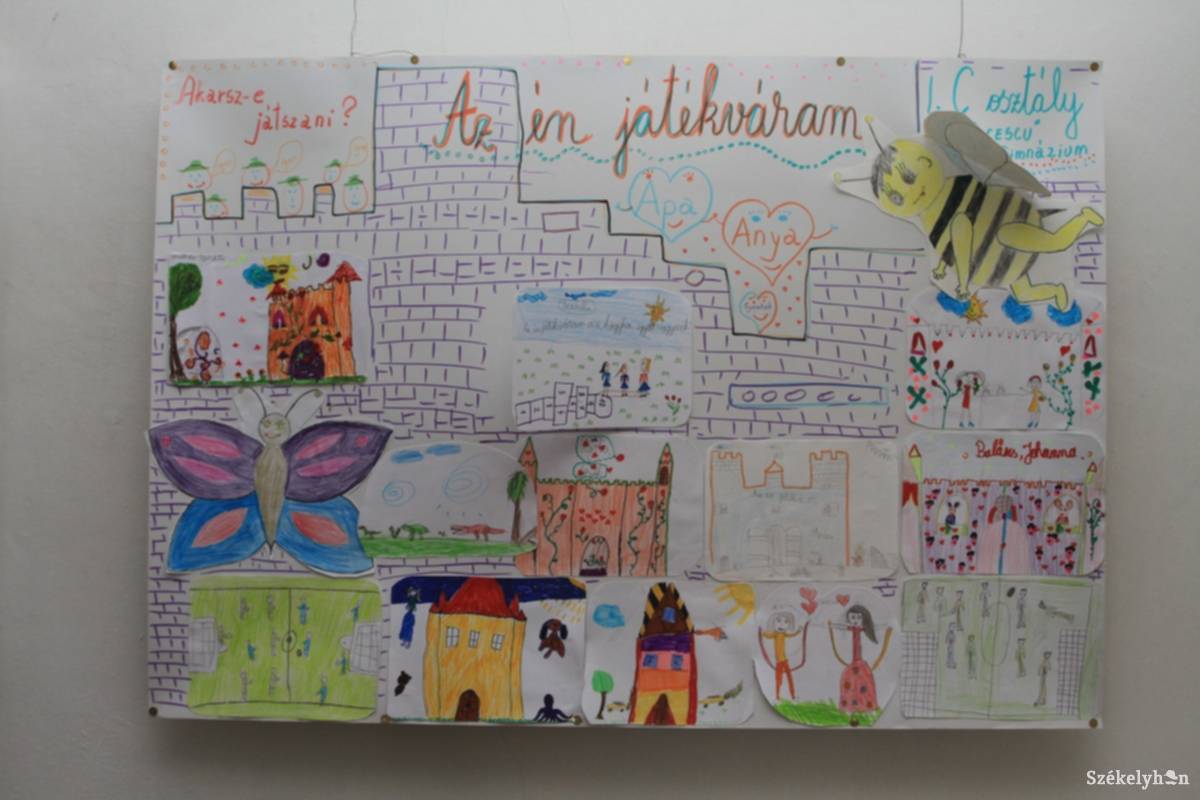 Akarsz-e
játszani?
Az én játékváram
I. C osztály
CESCU
imnázium
Apa
Anya
Balázs, Johanna
Székelyhon